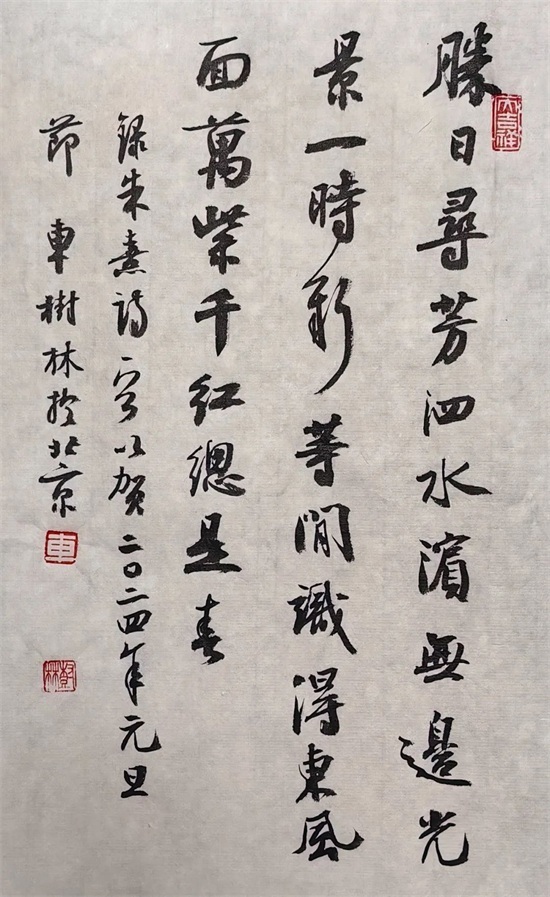 大吉祥
勝日尋芳泗水濱無邊光
景一時新等閒識得東風
面萬紫千紅總是春
錄朱熹詩一首以賀二〇二四年元旦
節 車樹林於北京
車
樹林